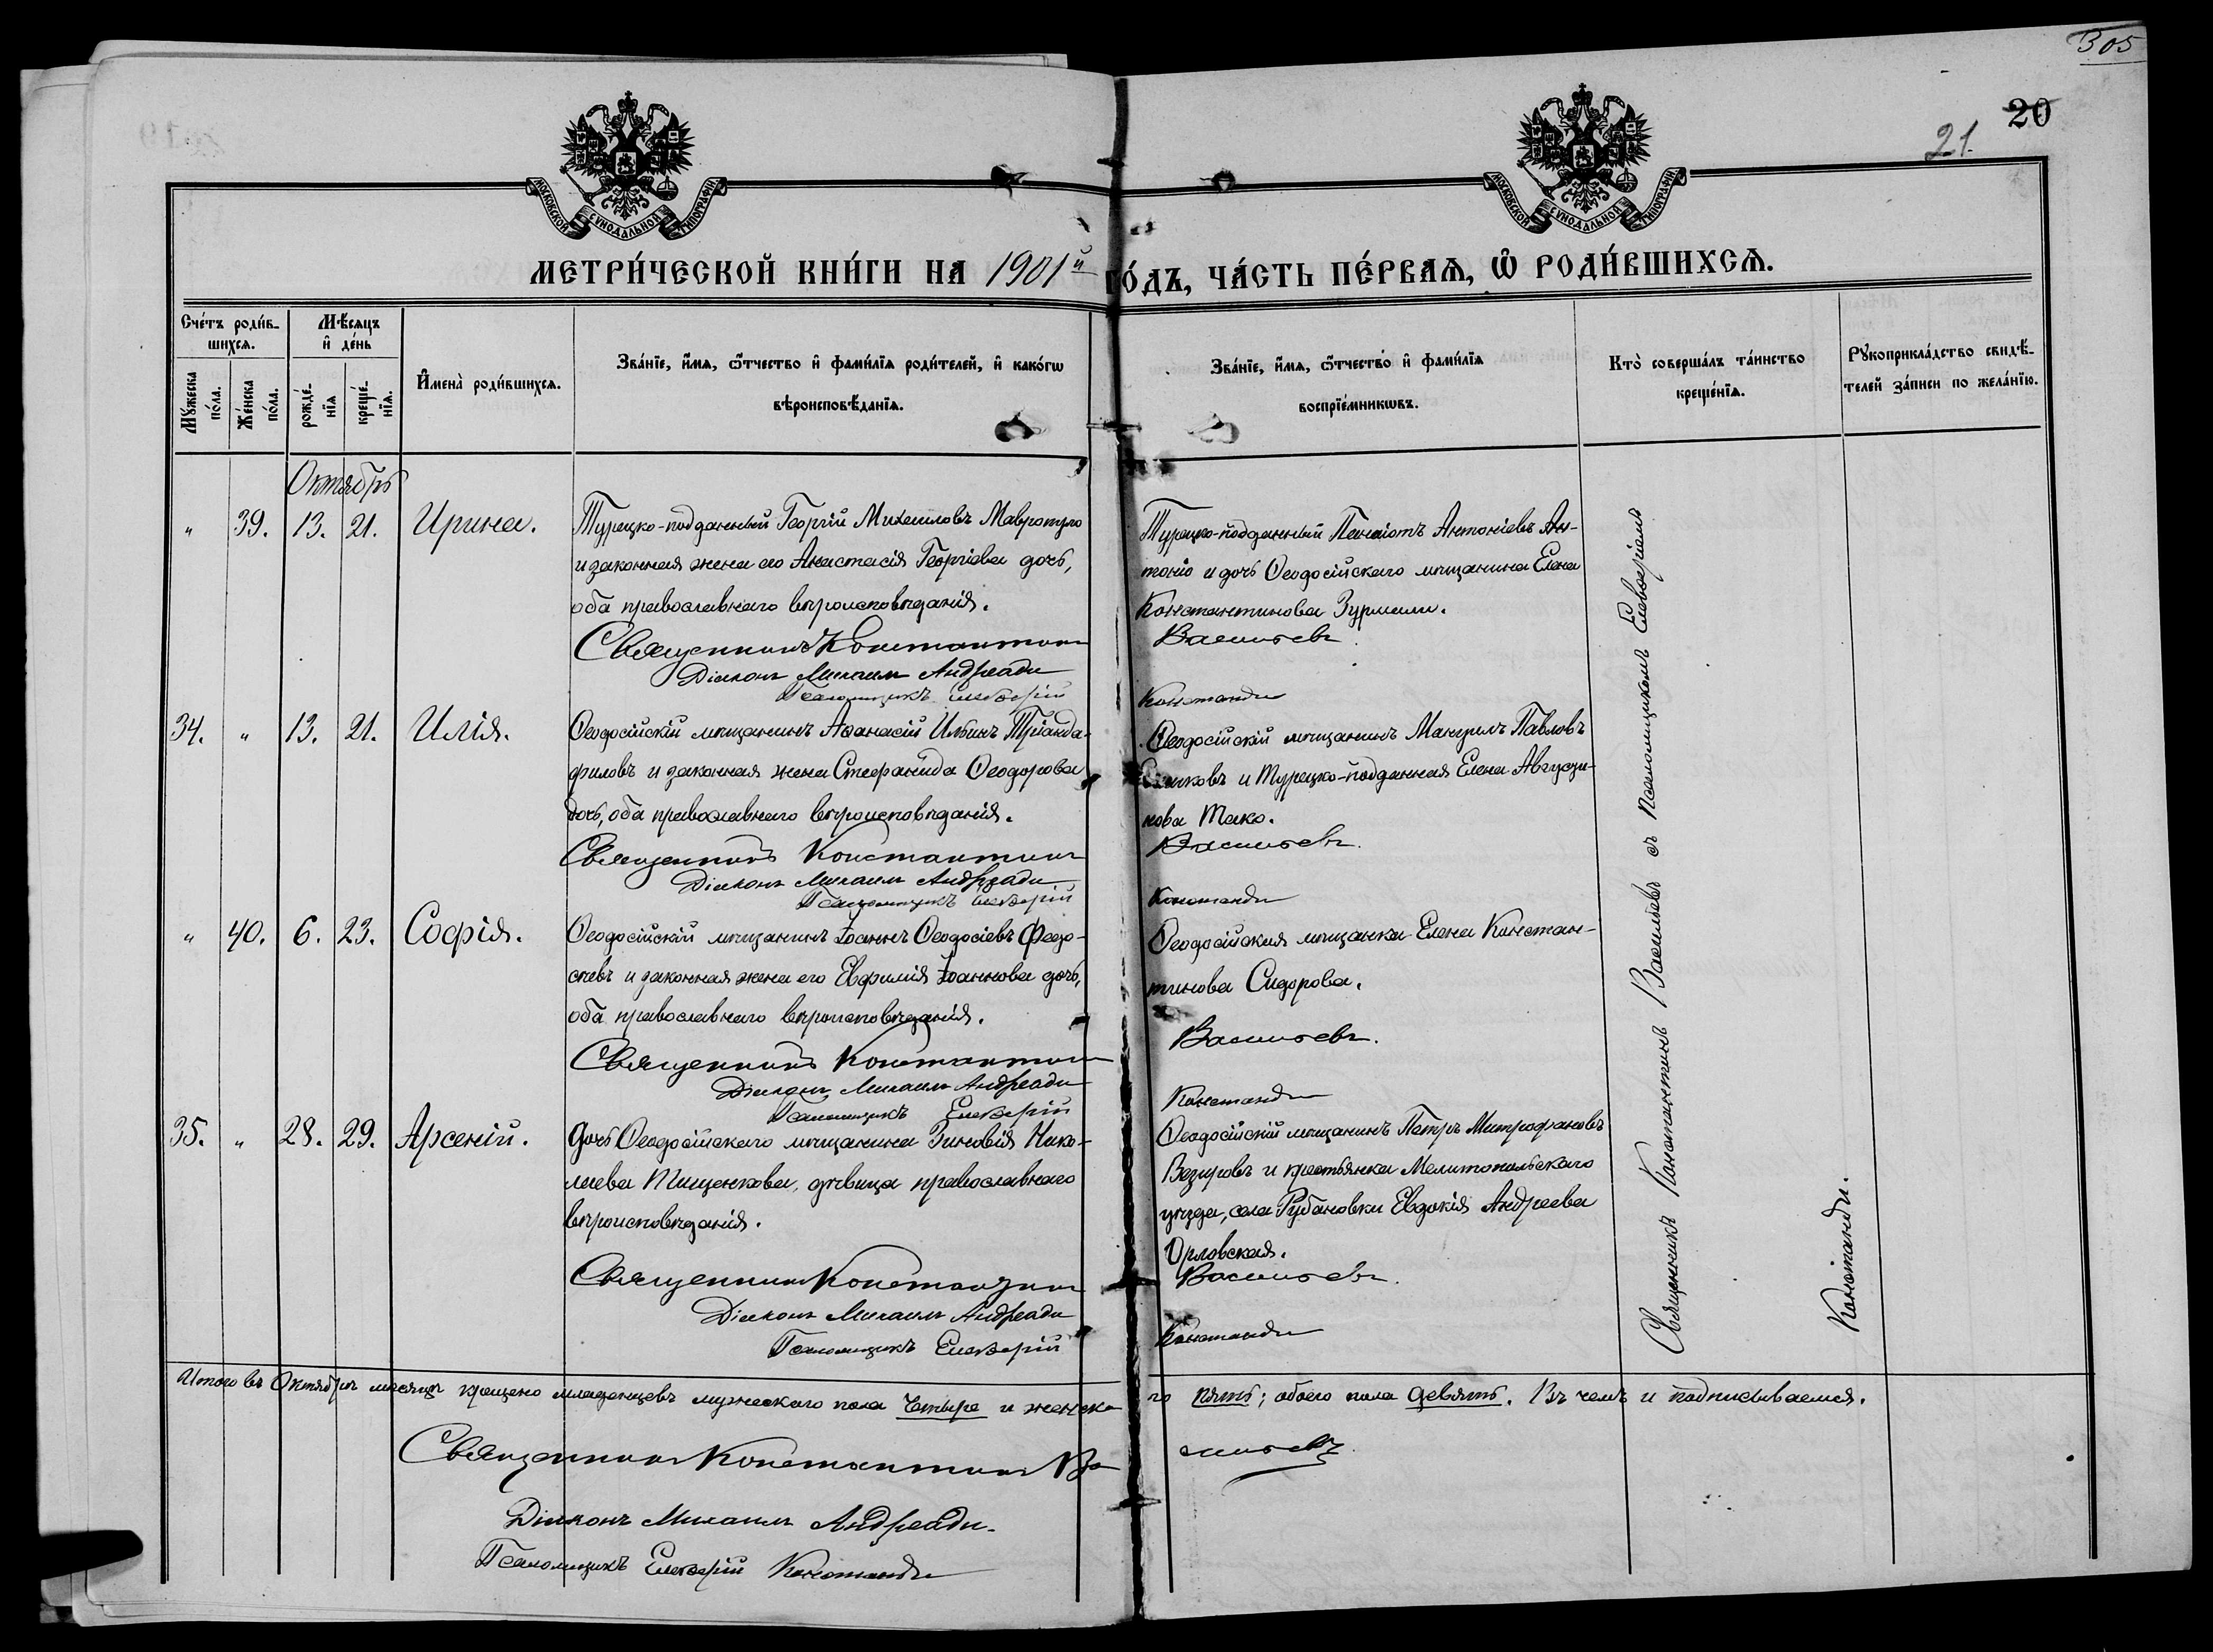 305
20
21.
МОСКОВСКОЙ СѴНОДАЛЬНОЙ ТИПОГРАФІИ
МОСКОВСКОЙ СѴНОДАЛЬНОЙ ТИПОГРАФІИ
МЕТРИ́ЧЕСКОЙ КНИ́ГИ НА 1901й ГО́ДЪ, ЧА́СТЬ ПЕ́РВАЯ, Ѽ РОДИ́ВШИХСЯ.
Сче́тъ роди́в-
шихся.
Мѣ́сяцъ
и де́нь
Мꙋ́жеска
по́ла.
Же́нска
по́ла.
рожде́-
нїя
креще́-
нїя.
Имена̀ роди́вшихся.
Зва́нїе, и́мя, ѻ҆́тчество и фами́лїя роди́телей, и како́гѡ
вѣроисповѣ́данїя.
Зва́нїе, и́мя, ѻ҆́тчество и фами́лїя
воспрїе́мникѡвъ.
Кто̀ соверша́лъ та́инство
креще́нїя.
Рꙋкоприкла́дство свидѣ́-
телей за́писи по жела́нїю.
Октябрь
" 39. 13. 21. Ирина.
Турецко-подданный Георгій Михаиловъ Мавропуло
и законная жена его Анастасія Георгіева дочь,
оба православнаго вѣроисповѣданія.
Священникъ Константинъ
Діаконъ Михаилъ Андреади
Псаломщикъ Елевѳерій
Турецко-подданный Панаіотъ Антоніевъ Ан-
тоніо и дочь Ѳеодосійскаго мѣщанина Елена
Константинова
Васильевъ.
Констанди
34. " 13. 21. Илія.
Ѳеодосійскій мѣщанинъ Аѳанасій Ильинъ Тріанда-
филовъ и законная жена Стефанида Ѳеодорова
дочь, оба православнаго вѣроисповѣданія.
Священникъ Константинъ
Діаконъ Михаилъ Андреади
Псаломщикъ Елевѳерій
Ѳеодосійскій мѣщанинъ Павловъ
и Турецко-подданная Елена
нова Тако.
Васильевъ.
Констанди
" 40. 6. 23. Софія.
Ѳеодосійскій мѣщанинъ Іоаннъ Ѳеодосіевъ Ѳеодо-
сіевъ и законная жена его Евфимія Іоаннова дочь,
оба православнаго вѣроисповѣданія.
Священникъ Константинъ
Діаконъ Михаилъ Андреади
Псаломщикъ Елевѳерій
Ѳеодосійская мѣщанка Елена Констан-
тинова Сидорова.
Васильевъ.
Констанди
35. " 28. 29. Арсеній.
Дочь Ѳеодосійскаго мѣщанина Зиновія Нико-
лаева Тищенкова, дѣвица православнаго
вѣроисповѣданія.
Священникъ Константинъ
Діаконъ Михаилъ Андреади
Псаломщикъ Елевѳерій
Ѳеодосійскій мѣщанинъ Петръ Митрофановъ
Везировъ и крестьянка Мелитопольскаго
уѣзда, села Рубановки Евдокія Андреева
Орловская.
Васильевъ.
Констанди
Священникъ Константинъ Васильевъ съ Псаломщикомъ Елевѳеріемъ
Констанди.
Итого въ Октябрѣ мѣсяцѣ крещено младенцевъ мужескаго пола Четыре и женска го пять; обоего пола девять. Въ чемъ и подписываемся.
Священникъ Константинъ Ва сильевъ.
Діаконъ Михаилъ Андреади.
Псаломщикъ Елевѳерій Констанди